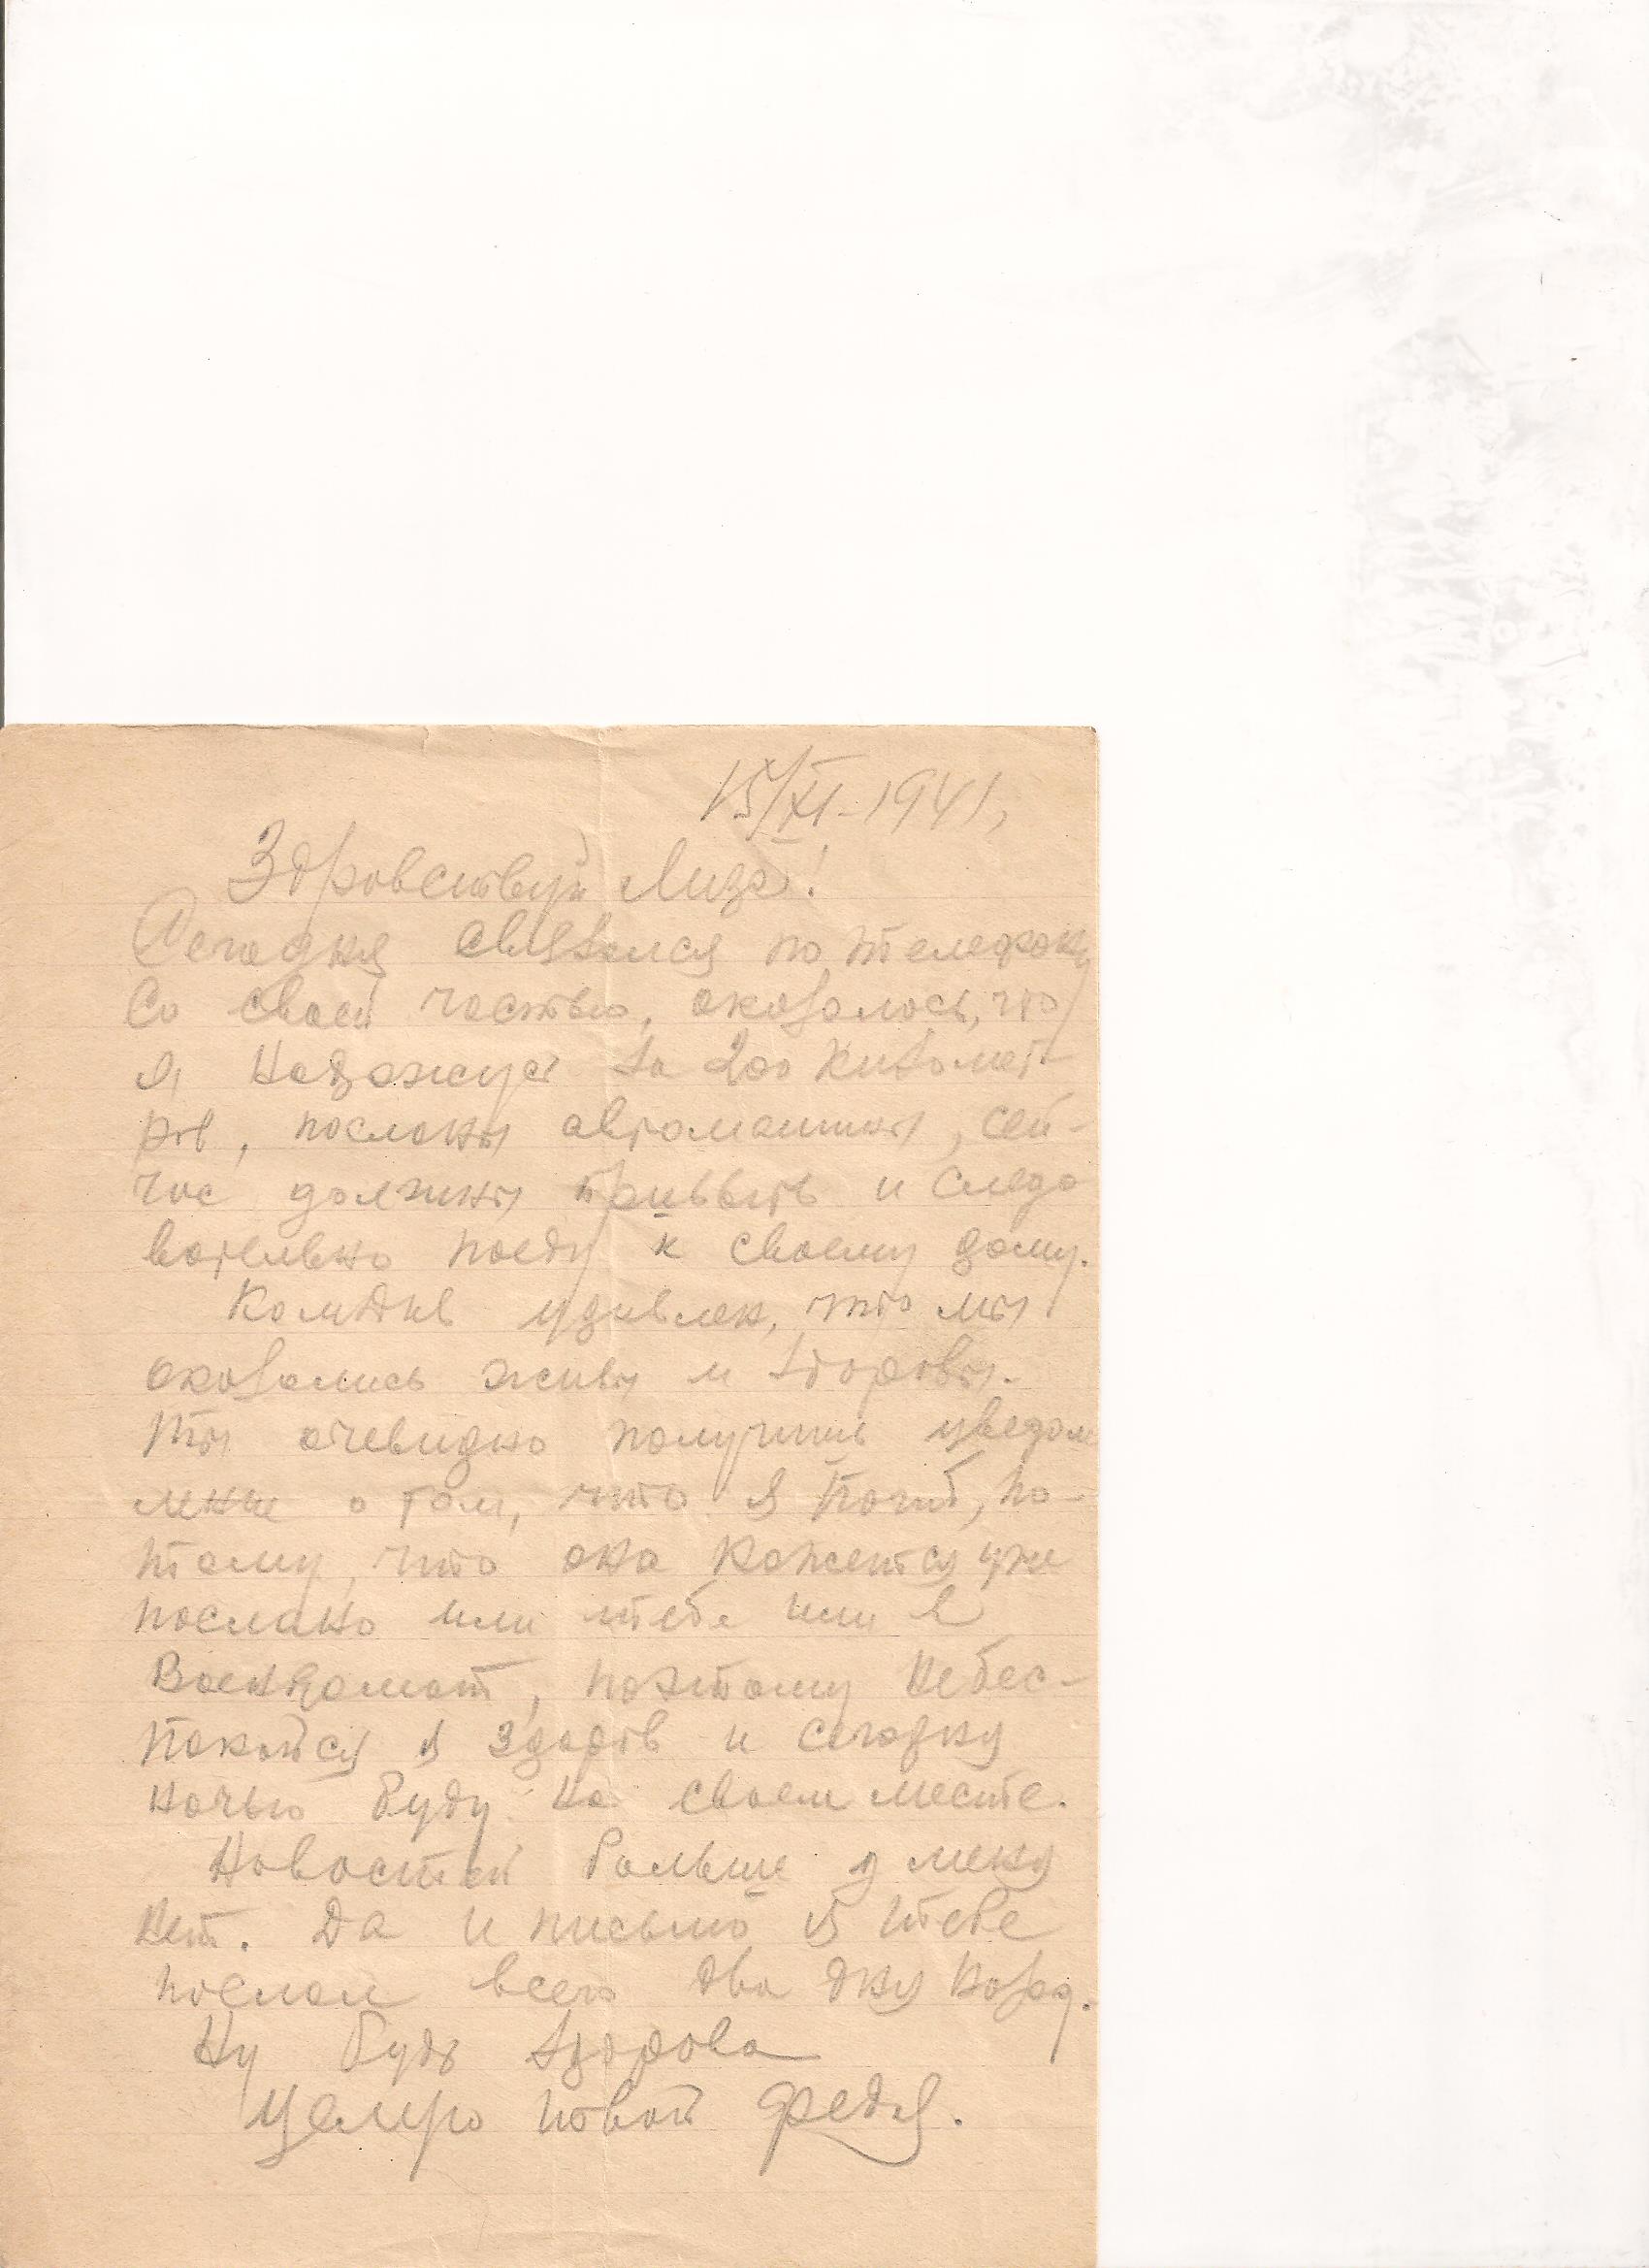 15/XI-1941,
Здровствуй Лиза!
Сегодня связался по телефону
Со своей частью, оказалось, что
я нахожусь за 200 километ-
ров, посланы автомашины, сей-
час должны прибыть и следо
вательно поеду к своему дому.
Комдив удивлен, что мы
оказались живы и здоровы.
Ты очевидно получишь уведом
ление о том, что я погиб, по-
тому, что оно кажется уже
послано или тебе или в
Военкомат, поэтому небес-
покойся я здоров и сегодня
ночью буду на своем месте.
Новостей больше у меня
нет. Да и письмо я тебе
послал всего два дня назад.
Ну будь здорова
Целую твой Федя.